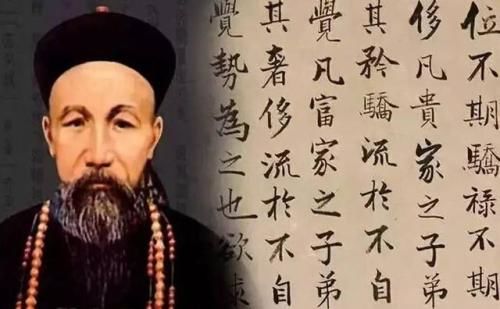 位不期驕禄不期
侈凡貴家之子弟
其矜驕流於不自
覺凡富家之子弟
其奢侈流於不自
覺勢為之也欲求